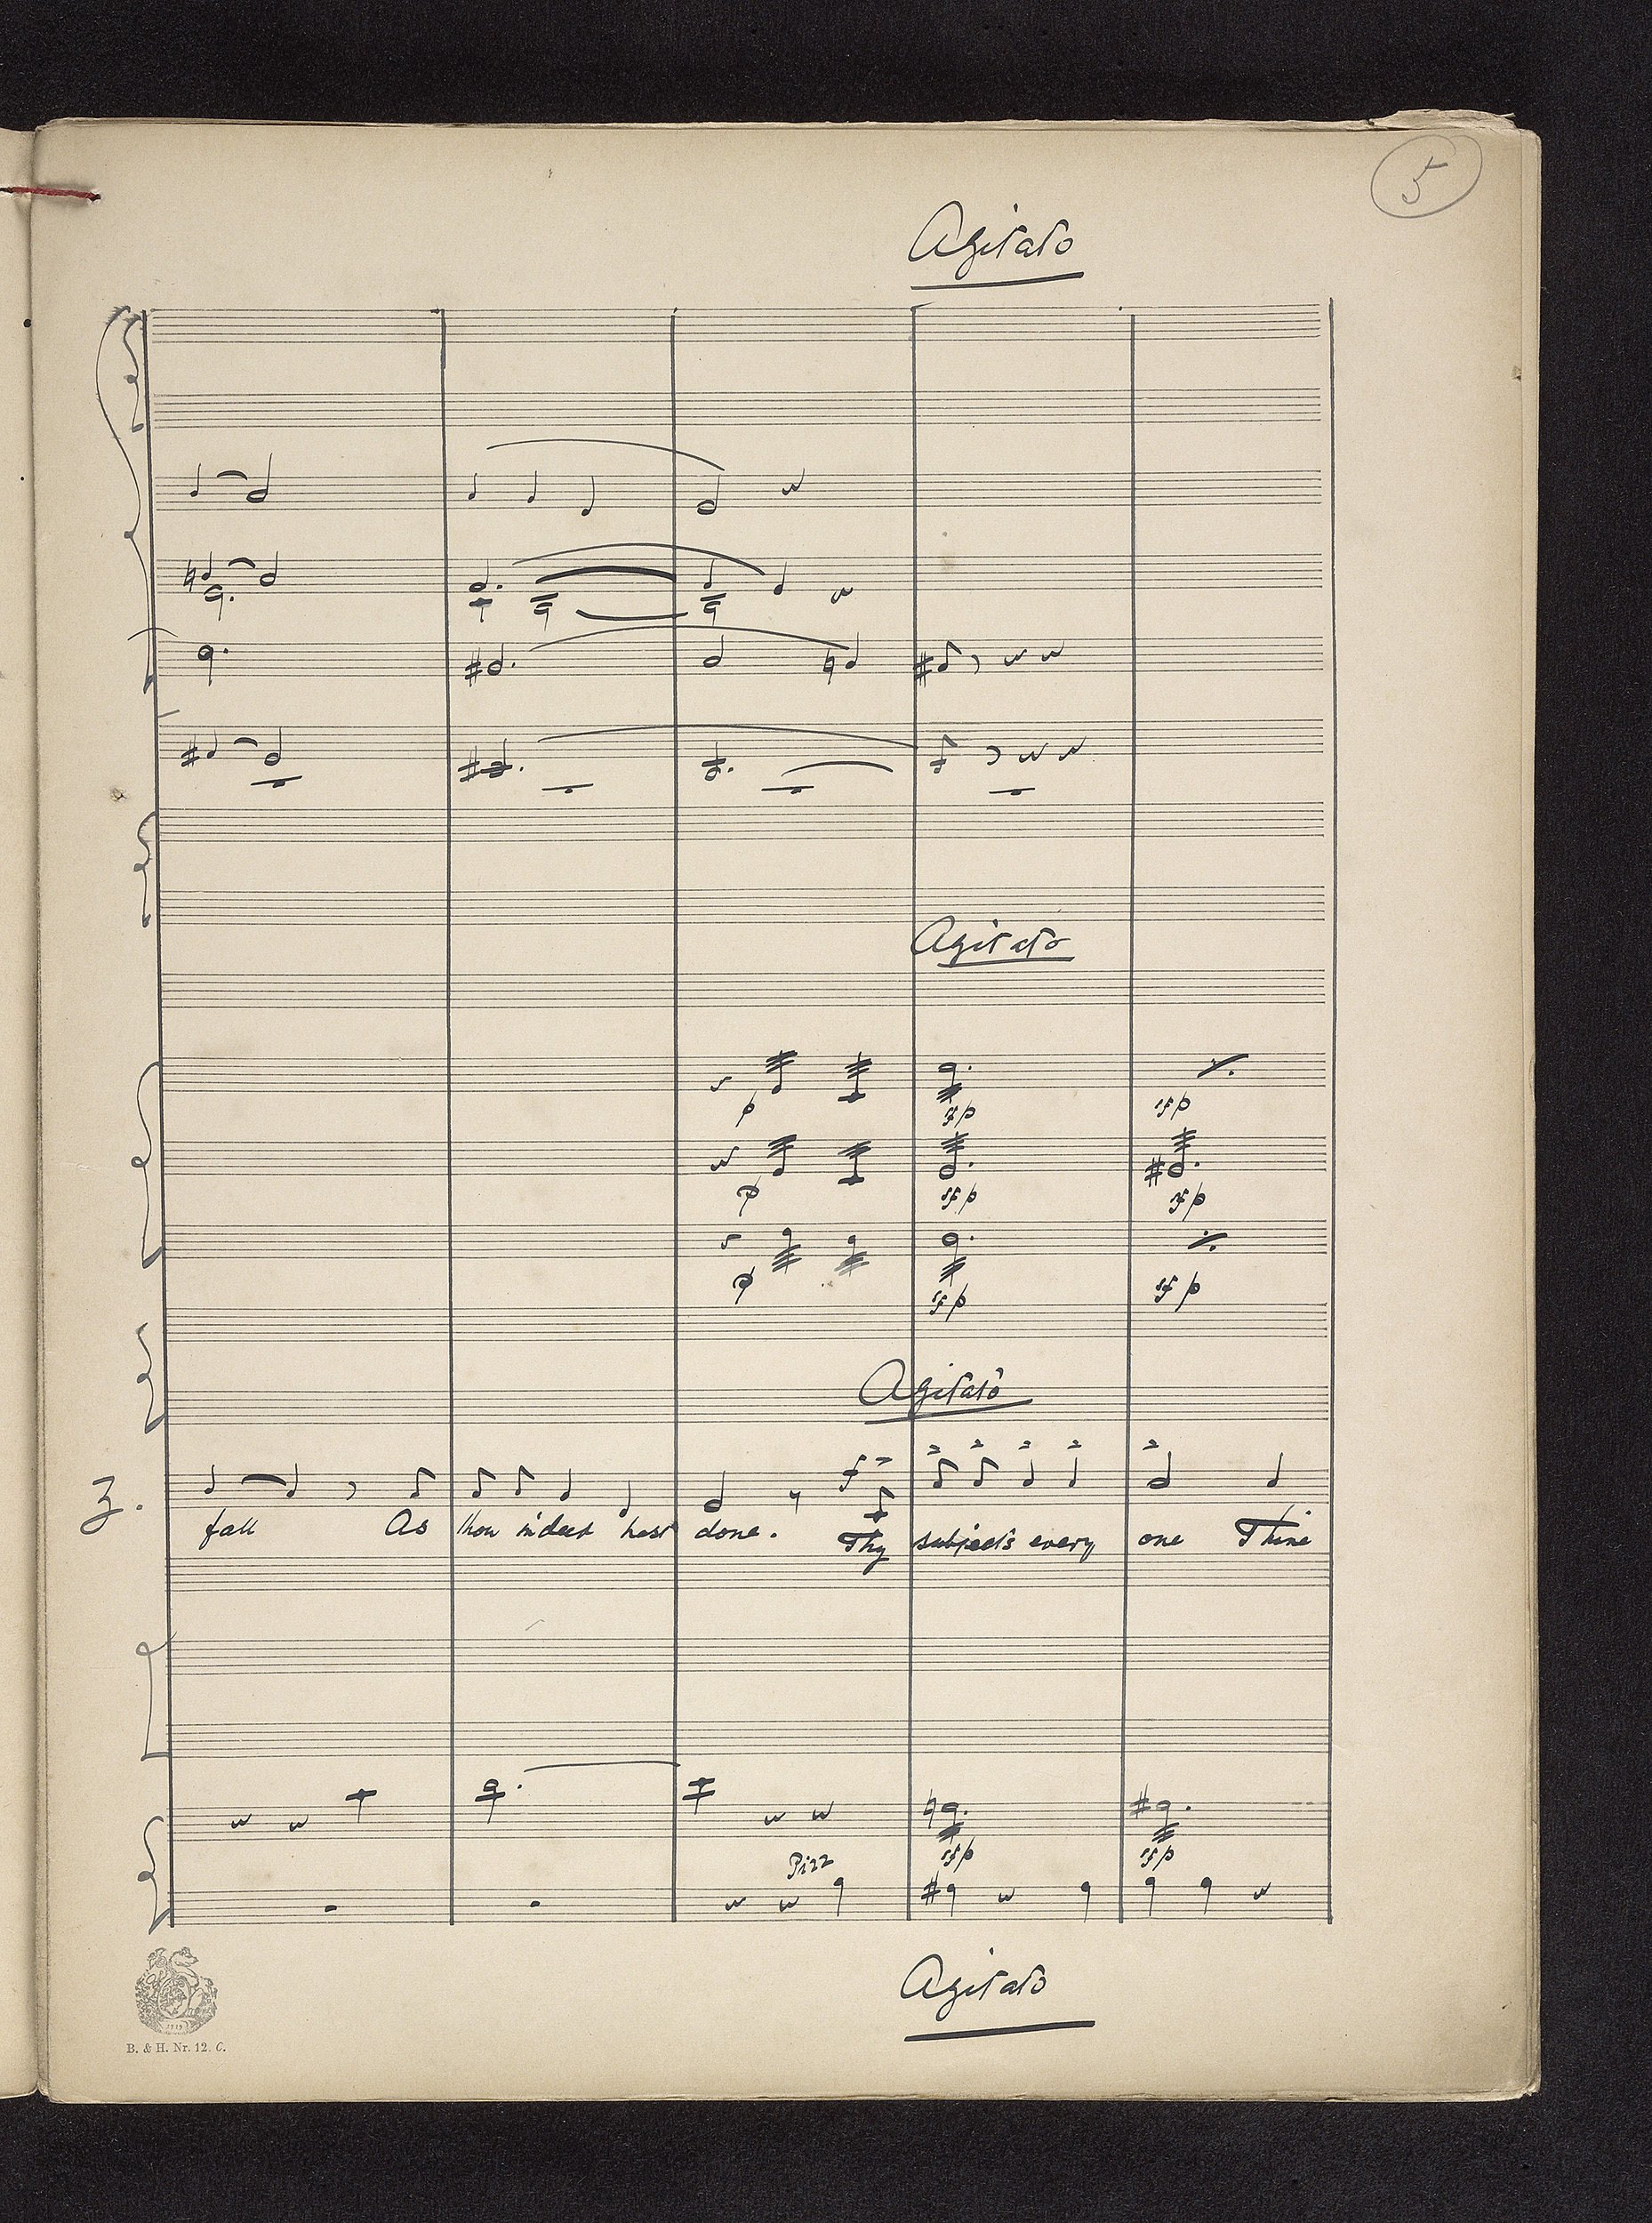 5
Agitato
Agitato
p
sfp
sfp
p
sfp
sfp
p
sfp
sfp
Agitato
f
Z.
fall As thou indeed hast done. Thy subjects every one Thine
Pizz
sfp
sfp
Agitato
1719
B. & H. Nr. 12. C.